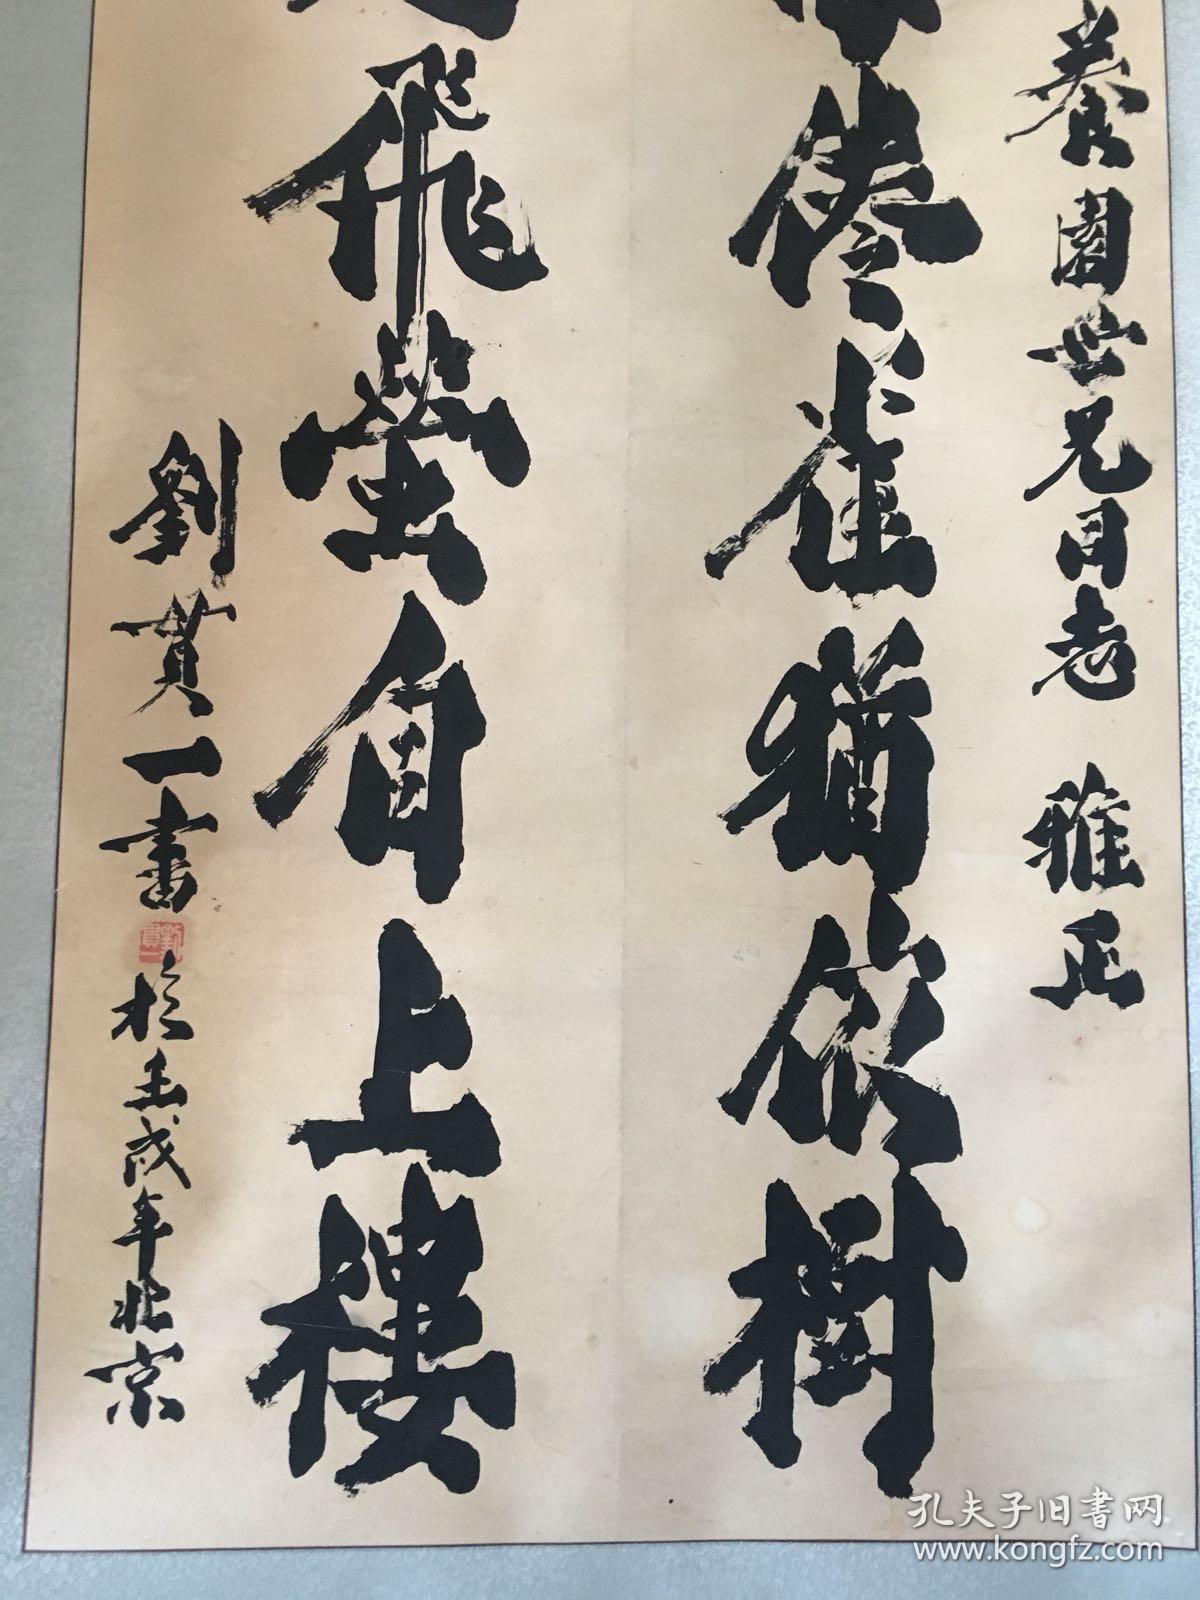 養園世兄同志 雅正
倦雀猶依樹
飛螢自上樓
劉貫一書
劉貫一
於壬戌年北京
孔夫子旧书网
www.kongfz.com